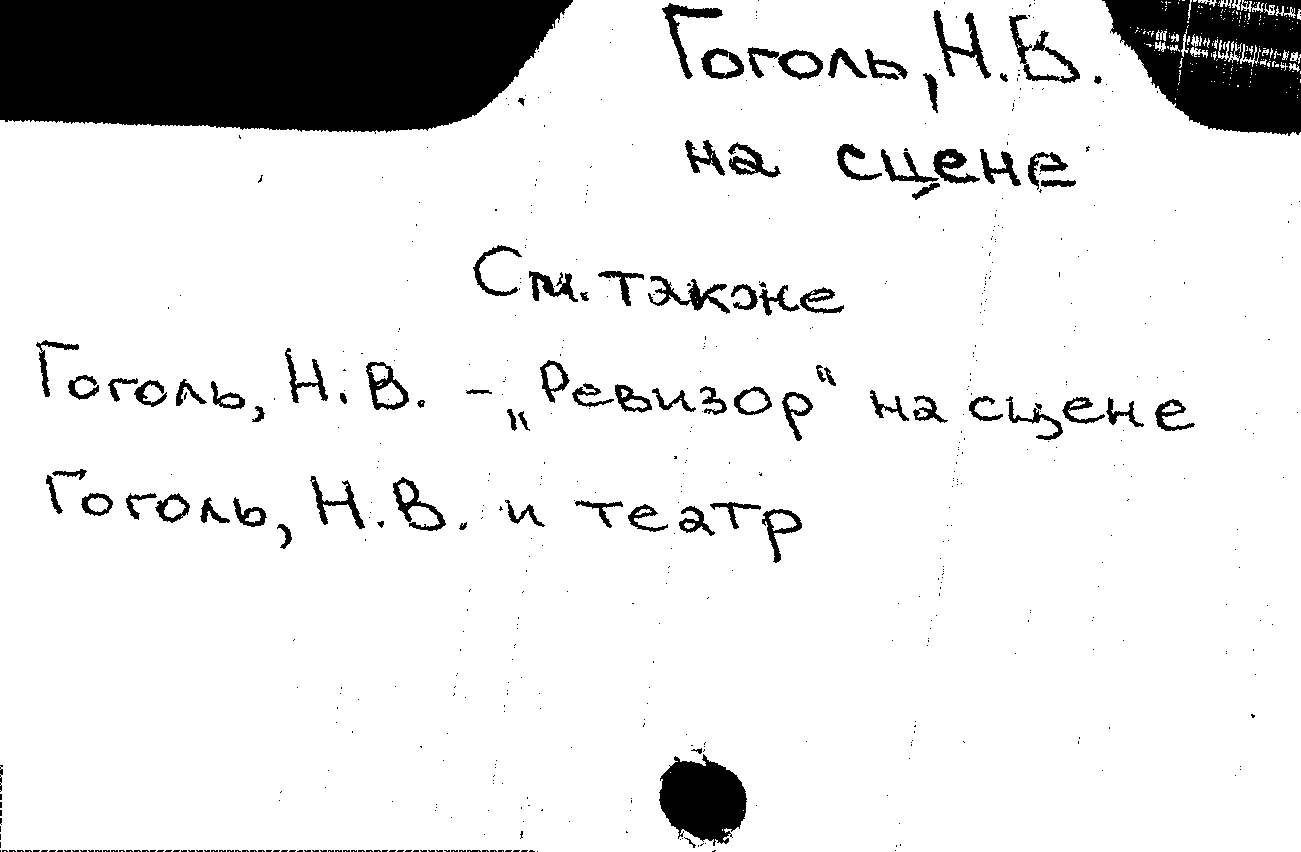 Гоголь, Н.В.
на сцене
См. также
Гоголь, Н.В. - „Ревизор“ на сцене
Гоголь, Н.В. и театр